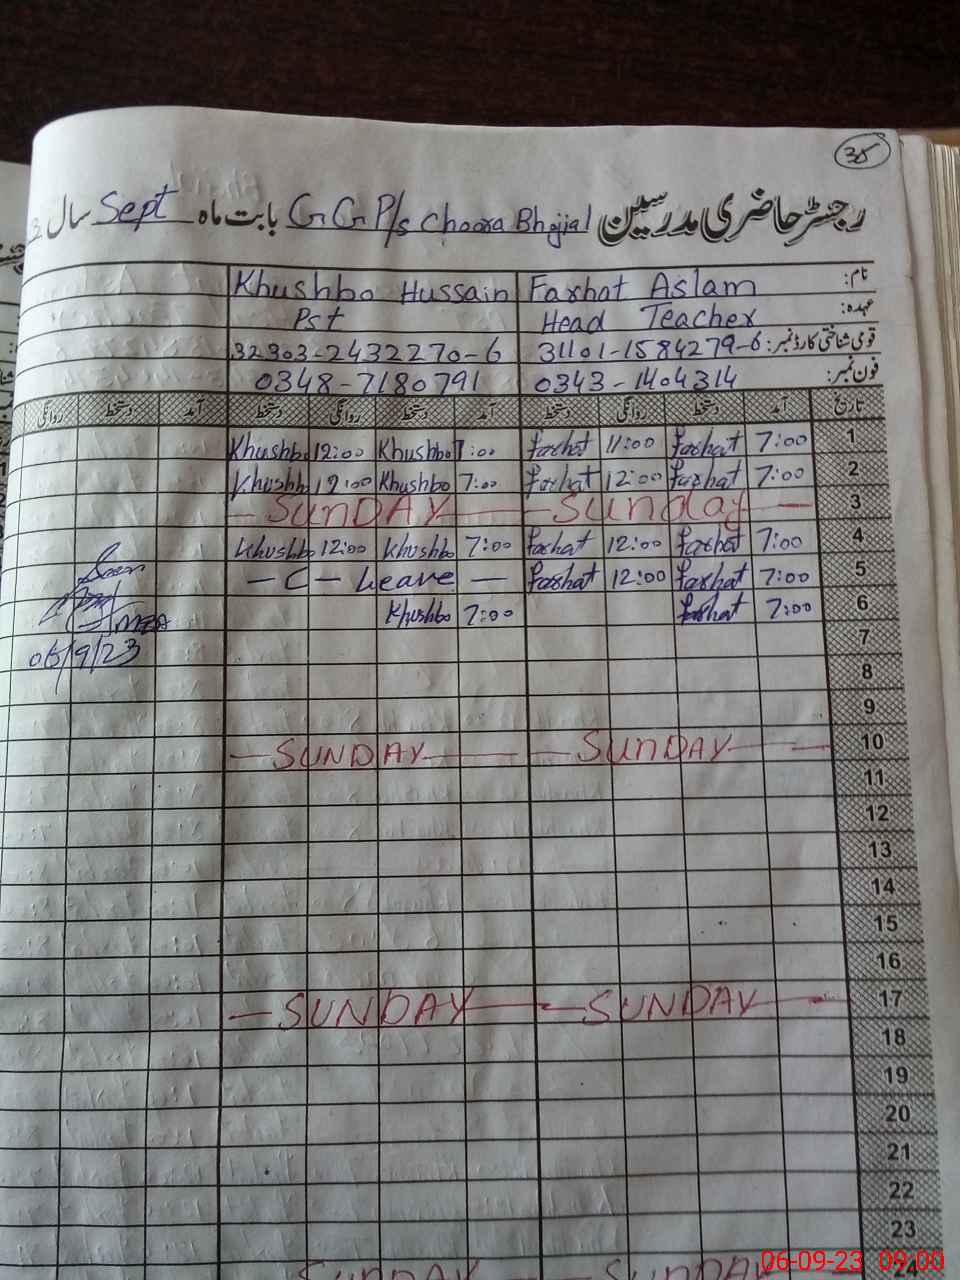 35
رجسٹر حاضری مدرسین G G P/s Choora Bhojial بابت ماہ Sept سال 3
نام: Farhat Aslam Khushbo Hussain
عہدہ: Head Teacher Pst
قومی شناختی کارڈ نمبر: 31101-1584279-6 32303-2432270-6
فون نمبر: 0343-1404314 0348-7180791
تاریخ آمد دستخط روانگی دستخط آمد دستخط روانگی دستخط آمد دستخط روانگی
1 7:00 Farhat 11:00 Farhat 7:00 Khushbo 12:00 Khushb
2 7:00 Farhat 12:00 Farhat 7:00 Khushbo 12:00 Khushb
3 — Sunday — — SUNDAY —
4 7:00 Farhat 12:00 Farhat 7:00 Khushbo 12:00 Khushb
5 7:00 Farhat 12:00 Farhat — C — Leave —
6 7:00 Farhat 7:00 Khushbo
Seen
06/9/23
7
8
9
10 — SUNDAY — — SUNDAY —
11
12
13
14
15
16
17 — SUNDAY — — SUNDAY —
18
19
20
21
22
23
24 SUNDAY SUNDAY
06-09-23 09:00